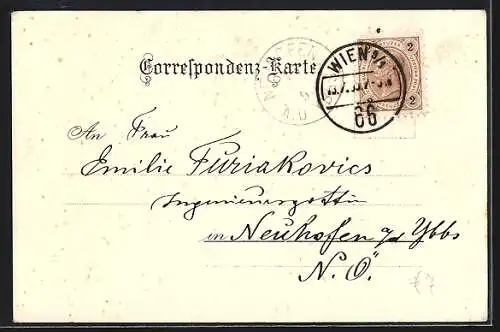 Correspondenz-Karte
WIEN 9/1
66
2
2
An Frau
Emilie Furiakovics
Ingenieursgattin
in Neuhofen a/d Ybbs
N.Ö.